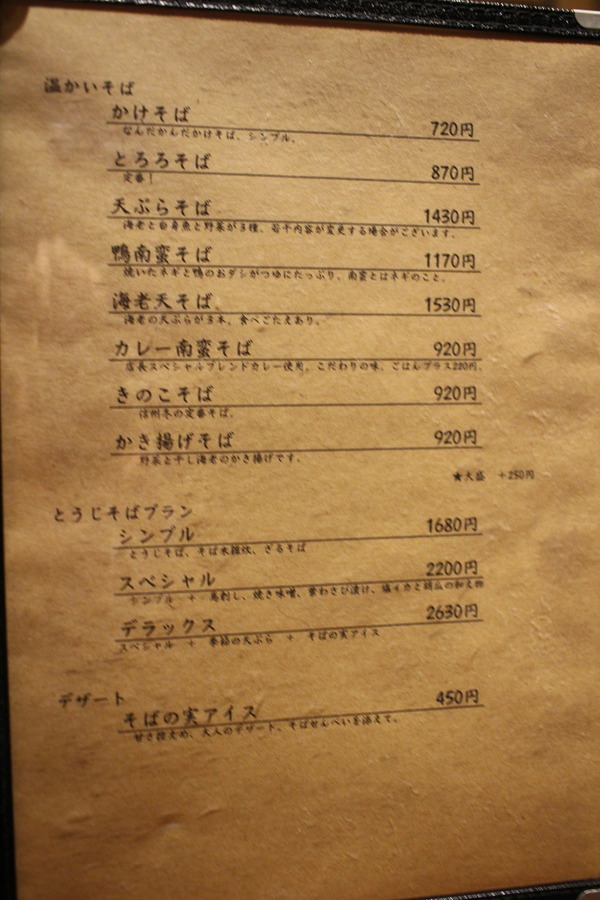 温かいそば
かけそば 720円
なんだかんだかけそば、シンプル。
とろろそば 870円
定番！
天ぷらそば 1430円
海老と白身魚と野菜が3種、若干内容が変更する場合がございます。
鴨南蛮そば 1170円
焼いたネギと鴨のおダシがつゆにたっぷり、南蛮とはネギのこと。
海老天そば 1530円
海老の天ぷらが3本、食べごたえあり。
カレー南蛮そば 920円
店長スペシャルブレンドカレー使用、こだわりの味、ごはんプラス220円。
きのこそば 920円
信州冬の定番そば。
かき揚げそば 920円
野菜と干し海老のかき揚げです。
★大盛 +250円
とうじそばプラン
シンプル 1680円
とうじそば、そば米雑炊、ざるそば
スペシャル 2200円
シンプル + 馬刺し、焼き味噌、葉わさび漬け、塩イカと胡瓜の和え物
デラックス 2630円
スペシャル + 季節の天ぷら + そばの実アイス
デザート
そばの実アイス 450円
甘さ控えめ、大人のデザート、そばせんべいを添えて。